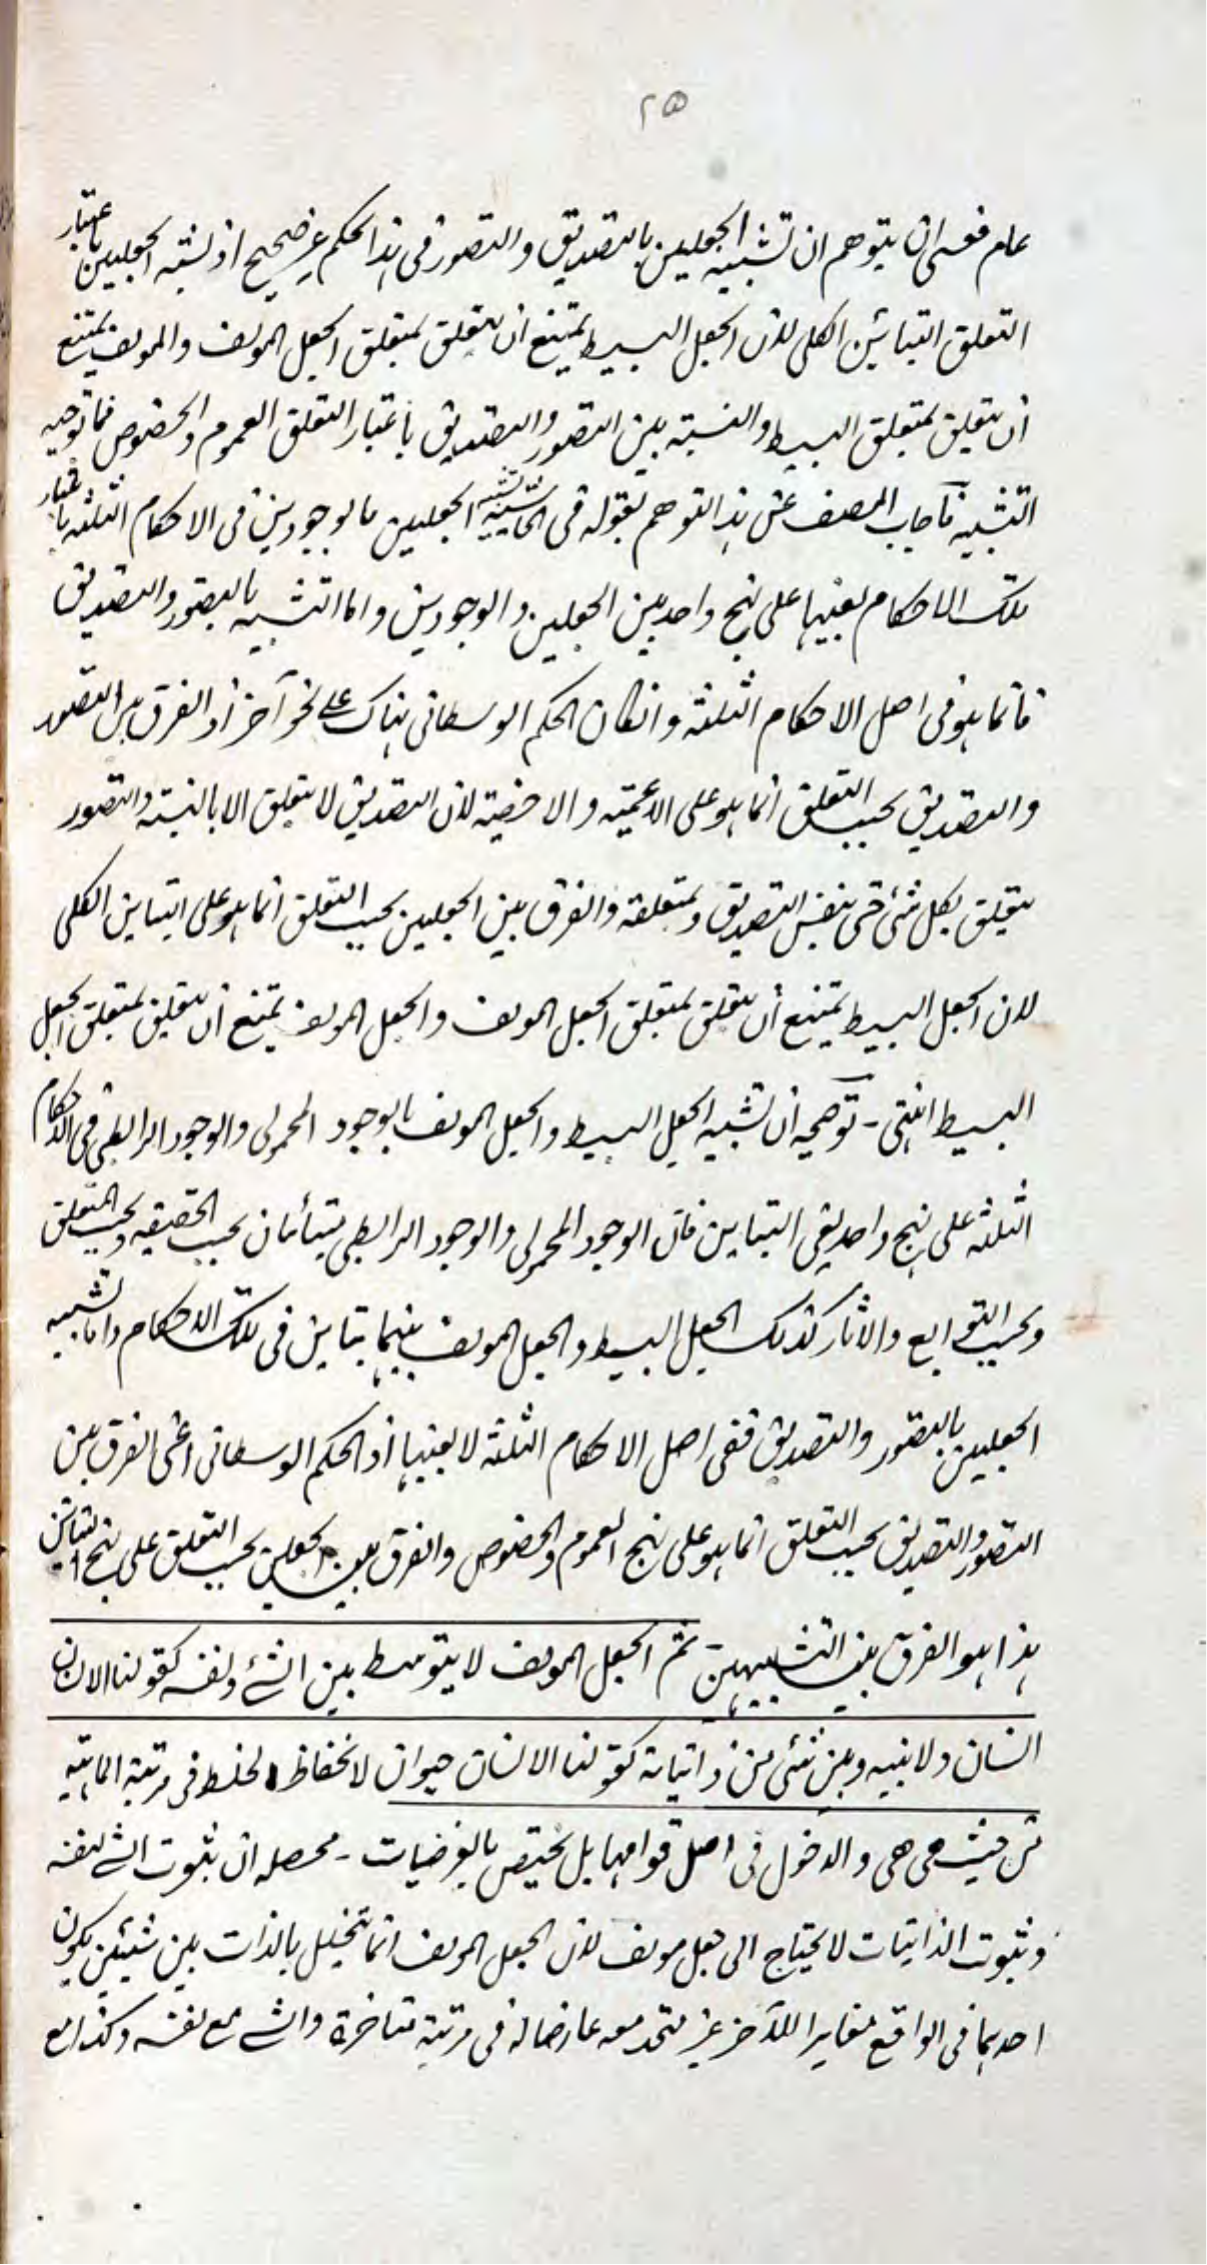 ٢٥
عام فعسى ان يتوهم ان تشبيه الجعلين بالتصديق والتصور فى هذا الحكم غير صحيح اذ نسبة الجعلين باعتبار
التعلق التباين الكلى لان الجعل البسيط يمتنع ان يتعلق بمتعلق الجعل المولف والمولف يمتنع
ان يتعلق بمتعلق البسيط والنسبة بين التصور والتصديق باعتبار التعلق العموم والخصوص فما توجيه
التشبيه فاجاب المصنف عن هذا التوهم بقوله فى الحاشية تشبيه الجعلين بالوجودين فى الاحكام الثلثة باعتبار
تلك الاحكام بعينها على نهج واحد بين الجعلين والوجودين واما التشبيه بالتصور والتصديق
فانما هو فى اصل الاحكام الثلثة وانكان الحكم الوسطانى هناك على نحو آخر اذ الفرق بين التصور
والتصديق بحسب التعلق انما هو على الاعمية والاخصية لان التصديق لا يتعلق الا بالنسبة والتصور
يتعلق بكل شئ حتى بنفس التصديق وبمتعلقه والفرق بين الجعلين بحسب التعلق انما هو على التباين الكلى
لان الجعل البسيط يمتنع ان يتعلق بمتعلق الجعل المولف والجعل المولف يمتنع ان يتعلق بمتعلق الجعل
البسيط انتهى - توضيحه ان تشبيه الجعل البسيط والجعل المولف بالوجود المحمولى والوجود الرابطى فى الاحكام
الثلثة على نهج واحد يعنى التباين فان الوجود المحمولى والوجود الرابطى متبائنان بحسب الحقيقة وبحسب المتعلق
وبحسب التوابع والاثار كذلك الجعل البسيط والجعل المولف بينهما تباين فى تلك الاحكام واما تشبيه
الجعلين بالتصور والتصديق ففى اصل الاحكام الثلثة لا بعينها اذ الحكم الوسطانى اعنى الفرق بين
التصور والتصديق بحسب التعلق انما هو على نهج العموم والخصوص والفرق بين الجعلين بحسب التعلق على نهج التباين
هذا هو الفرق بين التشبيهين - ثم الجعل المولف لا يتوسط بين الشئ ونفسه كقولنا الانسان
انسان ولا بينه وبين شئ من ذاتياته كقولنا الانسان حيوان لانحفاظ الخلط فى مرتبة الماهية
من حيث هى هى والدخول فى اصل قوامها بل يختص بالعرضيات - محصله ان ثبوت الشئ لنفسه
وثبوت الذاتيات لا يحتاج الى جعل مولف لان الجعل المولف انما يتخلل بالذات بين شيئين يكون
احدهما فى الواقع مغايرا للآخر غير متحد معه عارضا له فى مرتبة متاخرة والشئ مع نفسه وكذا مع